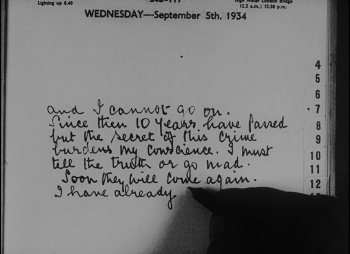 Lighting up 8.40
High Water London Bridge
12.2 a.m.; 12.38 p.m.
WEDNESDAY—September 5th, 1934
and I cannot go on.
Since then 10 years have passed
but the secret of this crime
burdens my conscience. I must
tell the truth or go mad.
Soon they will come again.
I have already
4
5
6
7
8
9
10
11
12